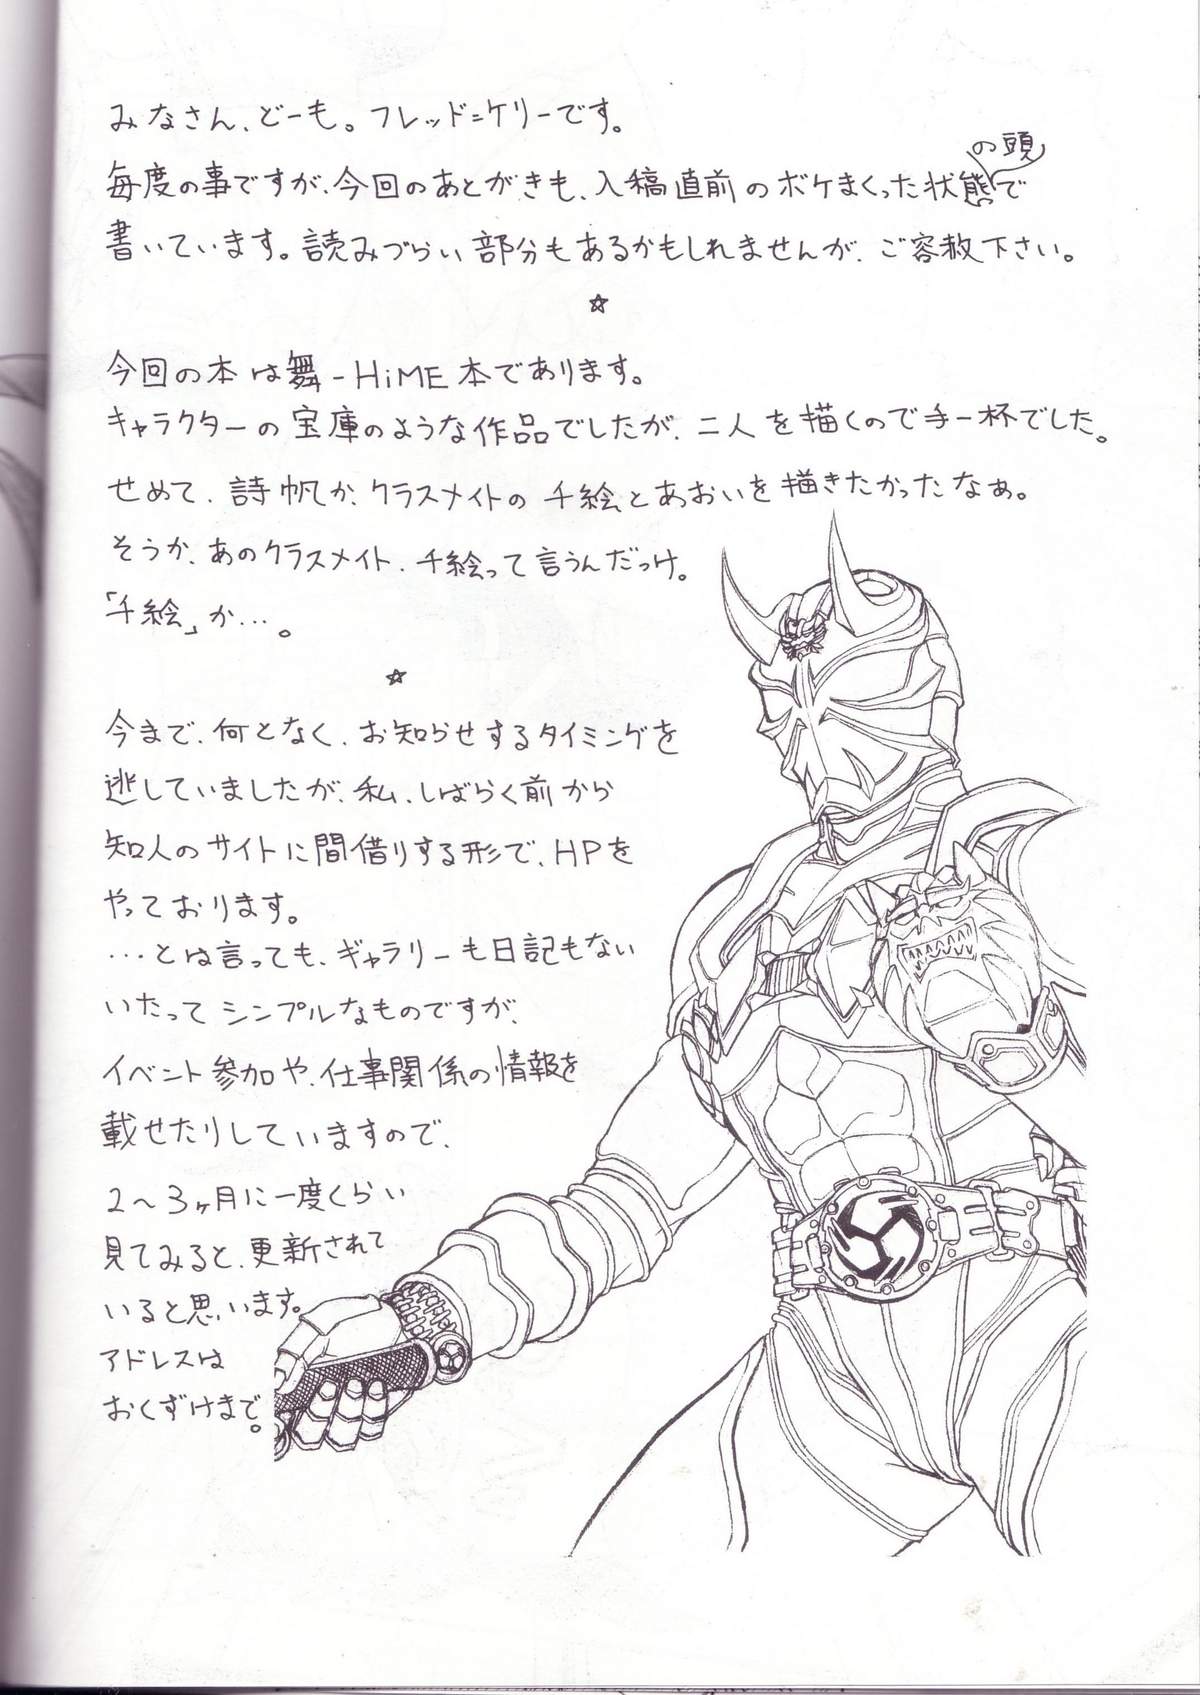 みなさん、どーも。フレッド=ケリーです。
毎度の事ですが、今回のあとがきも、入稿直前のボケまくった状態の頭で
書いています。読みづらい部分もあるかもしれませんが、ご容赦下さい。
☆
今回の本は舞-HiME本であります。
キャラクターの宝庫のような作品でしたが、二人を描くので手一杯でした。
せめて、詩帆か、クラスメイトの千絵とあおいを描きたかったなぁ。
そうか、あのクラスメイト、千絵って言うんだっけ。
「千絵」か…。
☆
今まで、何となく、お知らせするタイミングを
逃していましたが、私、しばらく前から
知人のサイトに間借りする形で、HPを
やっております。
…とは言っても、ギャラリーも日記もない
いたってシンプルなものですが、
イベント参加や、仕事関係の情報を
載せたりしていますので、
2～3ヶ月に一度くらい
見てみると、更新されて
いると思います。
アドレスは
おくずけまで。